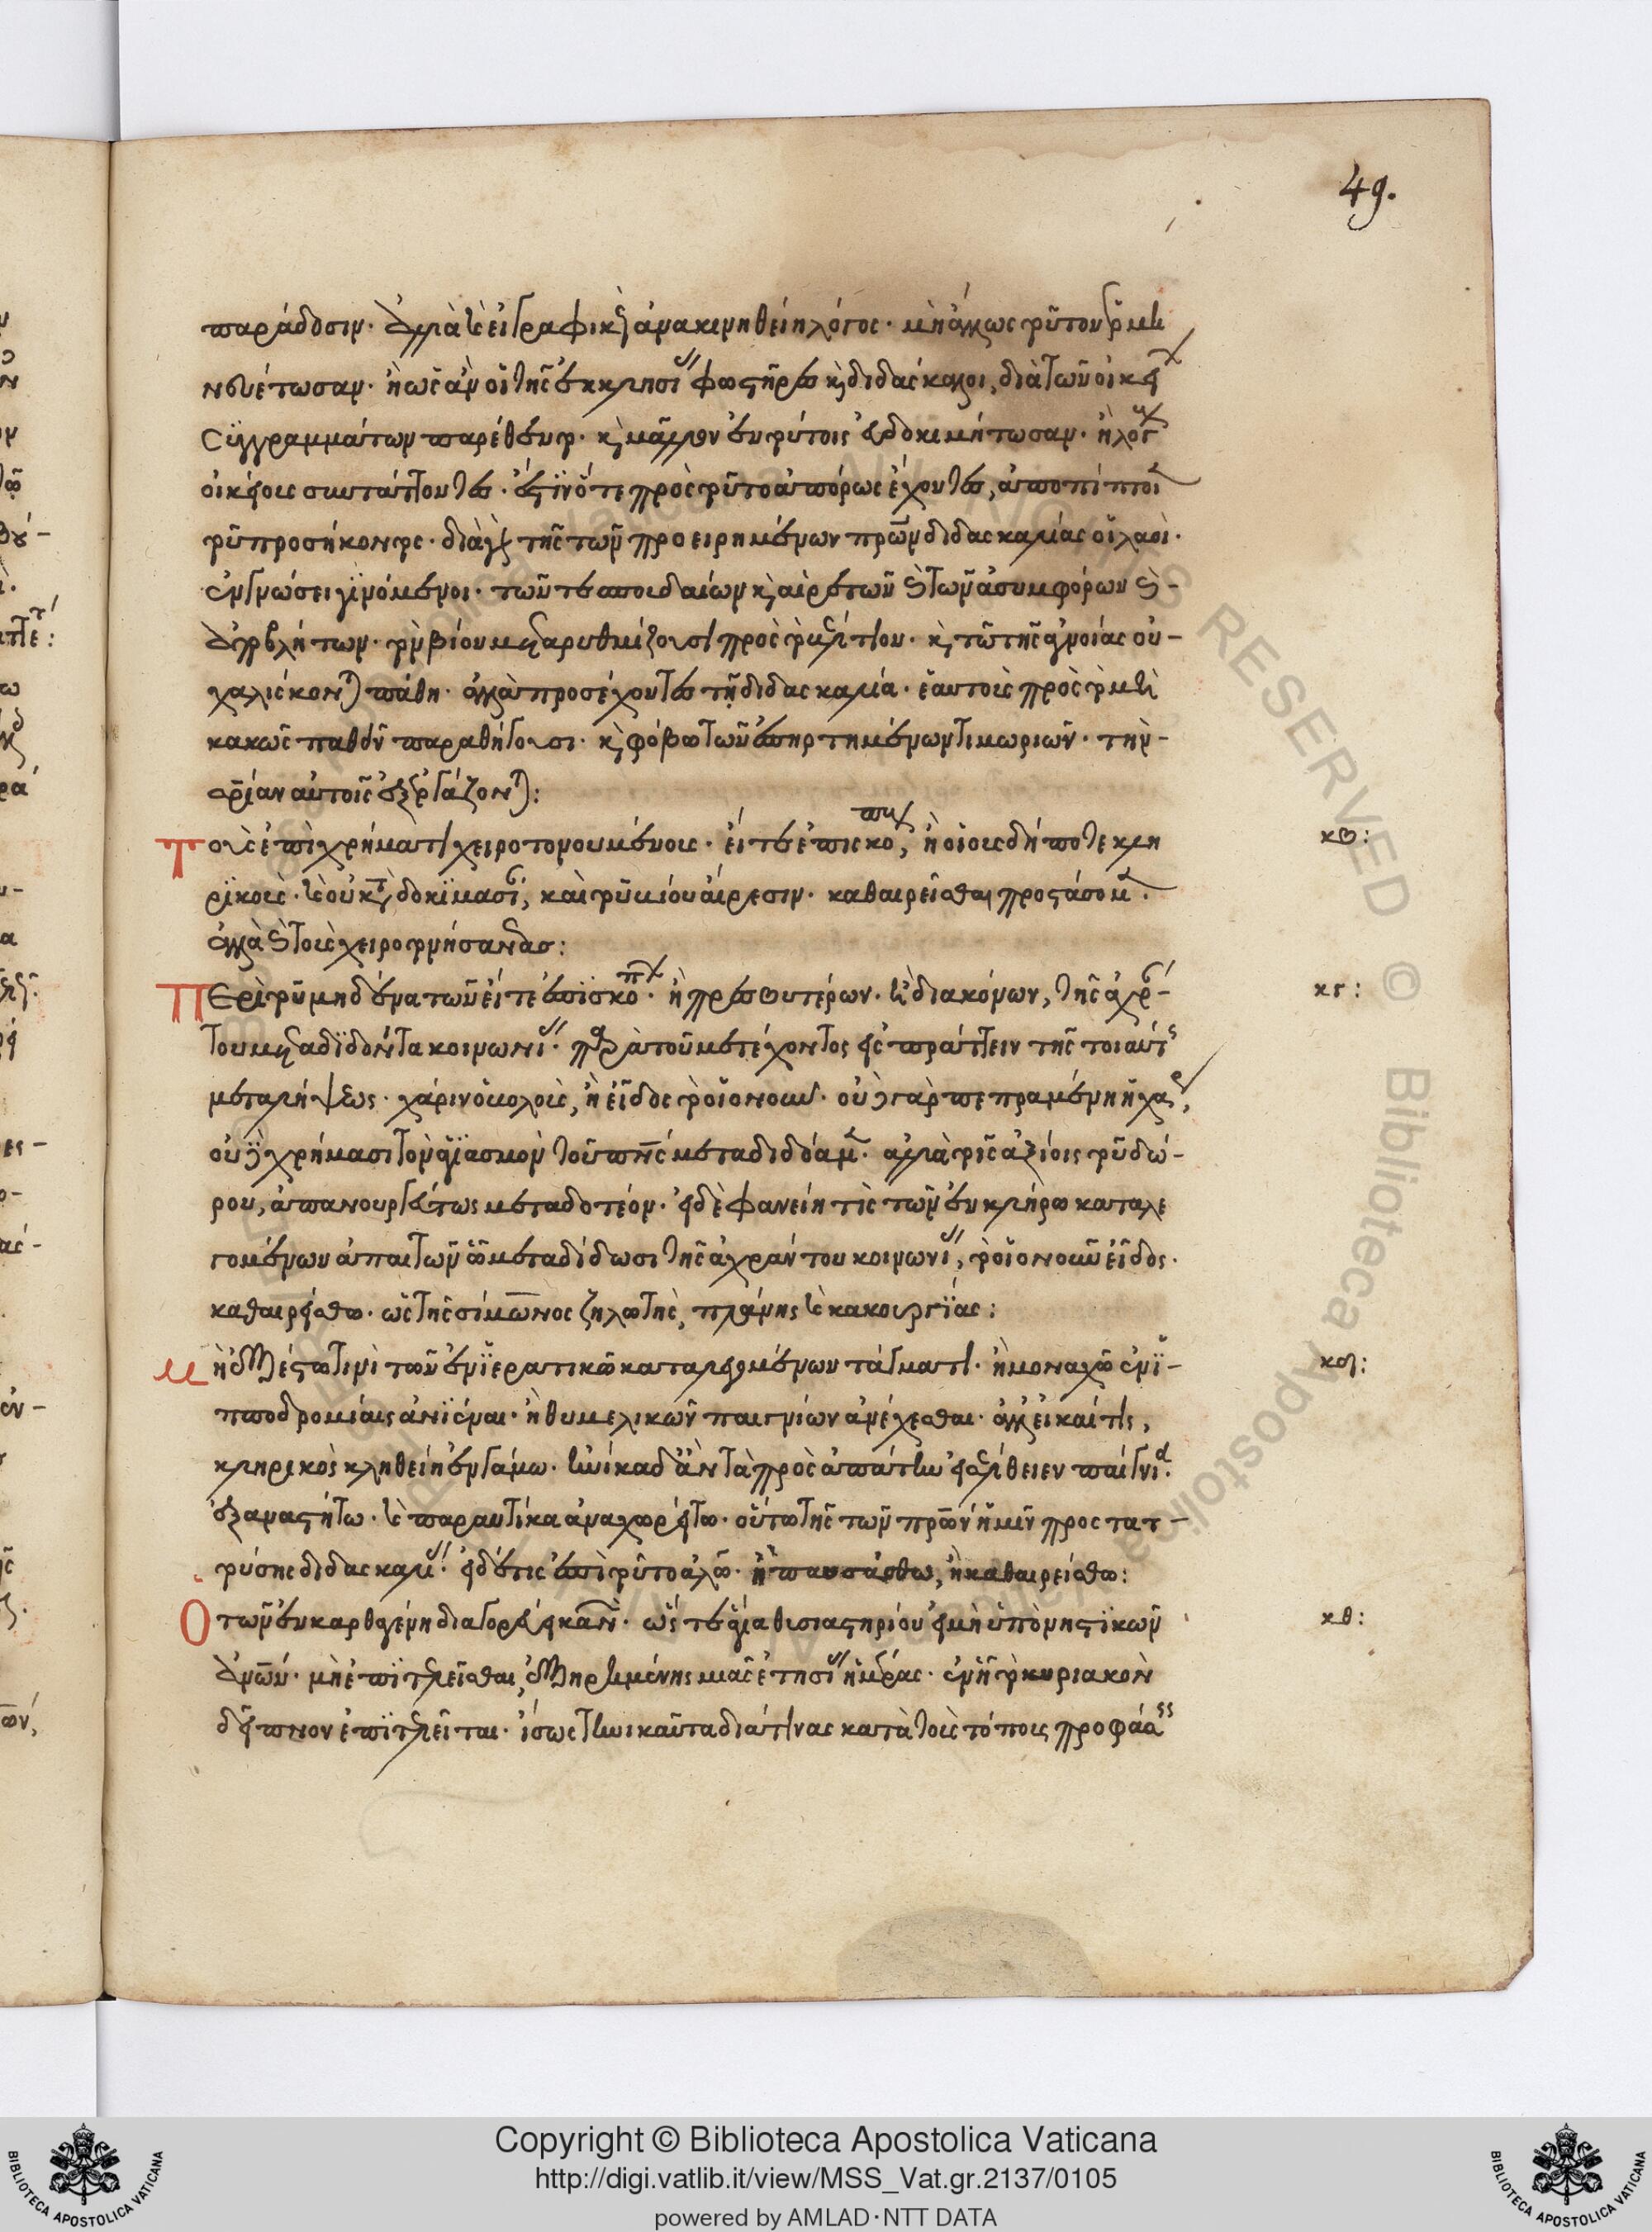 49.
παράδοσιν· ἀλλὰ καὶ εἰ γραφικὸς ἀνακινηθείη λόγος· μὴ ἄλλως τοῦτον ἑρμη
νευέτωσαν· ἢ ὡς ἂν οἱ τῆς ἐκκλησίας φωστῆρες καὶ διδάσκαλοι, διὰ τῶν οἰκείων
συγγραμμάτων παρέθεντο· καὶ μᾶλλον ἐν τούτοις εὐδοκιμήτωσαν· ἢ λόγους
οἰκείους συντάττοντες· ἔστιν ὅτε πρὸς τοῦτο ἀπόρως ἔχοντες, ἀποπίπτοιεν
τοῦ προσήκοντος· διὰ γὰρ τῆς τῶν προειρημένων πρων διδασκαλίας οἱ λαοὶ·
ἐν γνώσει γινόμενοι· τῶν τε σπουδαίων καὶ αἱρετῶν καὶ τῶν ἀσυμφόρων καὶ -
ἀποβλήτων· τὸν βίον μεταρυθμίζουσι πρὸς τὸ βέλτιον· καὶ τῶ τῆς ἀγνοίας οὐ -
χαλισκονται πάθη· ἀλλὰ προσέχοντες τῆ διδασκαλία· ἑαυτοὺς πρὸς τὸ μὴ
κακῶς παθεῖν παραθήγουσι· καὶ φόβω τῶν ἐπηρτημένων τιμωριῶν· τὴν -
σρίαν αὐτοῖς ἐξεργάζονται:
Τοὺς ἐπὶ χρήμασι χειροτονουμένους· εἴτε ἐπισκόπους, ἢ οἱουσδήποτε κλη κβ:
ρικοὺς· καὶ οὐ κατὰ δοκιμασίαν, καὶ τοῦ βίου αἵρεσιν· καθαιρεῖσθαι προστάσομεν·
ἀλλὰ καὶ τοὺς χειροτονήσαντας:
Περὶ τοῦ μηδένα τῶν εἴτε ἐπισκόπων· ἢ πρεσβυτέρων· ἢ διακόνων, τῆς ἀχράν- κγ:
του μεταδιδόντα κοινωνίας· παρὰ τοῦ μετέχοντος εἰσπράττειν τῆς τοιαύτης
μεταλήψεως· χάριν ὀβολοὺς, ἢ εἶδος τὸ οἱονοῦν· οὐδὲ γὰρ πεπραμένη ἡ χάρις,
οὐδὲ χρήμασι τὸν ἁγιασμὸν τοῦ πνς μεταδίδόαμεν· ἀλλὰ τοῖς ἀξίοις τοῦ δώ-
ρου, ἀπανουργεύτως μεταδοτέον· εἰ δὲ φανείη τὶς τῶν ἐν κλήρω καταλε
γομένων ἀπαιτῶν ὧ μεταδίδωσι τῆς ἀχράντου κοινωνίας, τὸ οἱονοῦν εἶδος·
καθαιρείσθω· ὡς τῆς σίμωνος ζηλωτὴς, πλάνης καὶ κακουργίας:
Μὴ ἐξέστω τινὶ τῶν ἐν ἱερατικῶ καταλεγομένων τάγματι· ἢ μοναχῶ ἐν ἱ- κδ:
πποδρομίαις ἀνιέναι· ἢ θυμελικῶν παιγνίων ἀνέχεσθαι· ἀλλ' εἰ καί τις,
κληρικὸς κληθείη ἐν γάμω· ἡνίκα δ' ἂν τὰ πρὸς ἀπάτην εἰσέλθειεν παίγνια·
ἐξαναστήτω· καὶ παραυτίκα ἀναχωρείτω· οὕτω τῆς τῶν πρων ἡμῖν προστατ-
τούσης διδασκαλίας· εἰ δέ τις ἐπὶ τοῦτο ἁλῶ· ἢ παυσάσθω, ἢ καθαιρείσθω:
Ὁ τῶν ἐν καρθαγένη διαγορεύει κανὼν· ὥστε ἅγια θυσιαστηρίου εἰ μὴ ὑπὸ νηστικῶν κθ:
ἀνων· μὴ ἐπιτελεῖσθαι, ἐξηρημένης μιᾶς ἐτησίου ἡμέρας· ἐν ἧ τὸ κυριακὸν
δεῖπνον ἐπιτελεῖται· ἴσως τηνικαῦτα διά τινας κατὰ τοὺς τόπους προφάσεις
Copyright © Biblioteca Apostolica Vaticana
http://digi.vatlib.it/view/MSS_Vat.gr.2137/0105
powered by AMLAD·NTT DATA